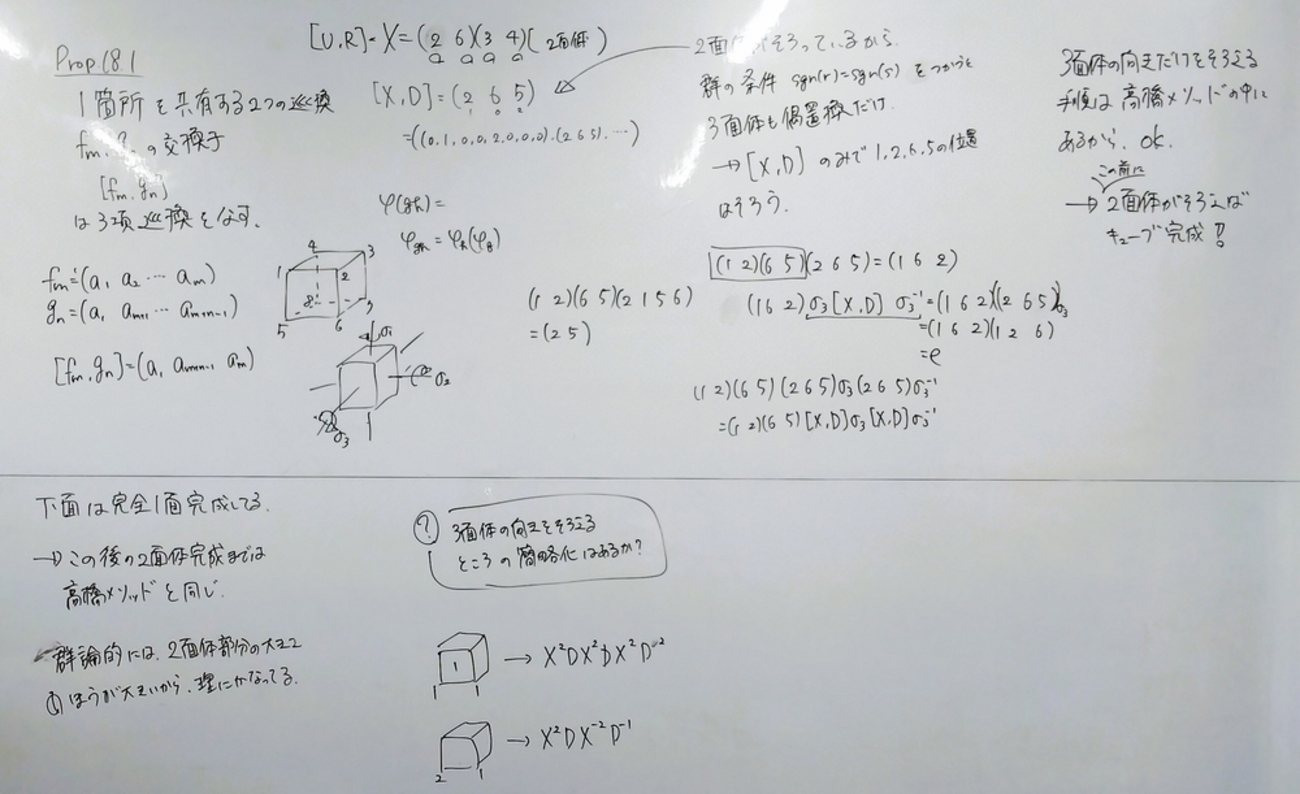 Prop 18.1
1箇所を共有する2つの巡換
fm, の交換子
[fm, gn]
は3項巡換をなす.
fm=(a1 a2 … am)
gn=(a1 am+1 … am+n-1)
[fm, gn]=(a1 am+n-1 am)
[U,R]=X=(2 6)(3 4)(2面体)
a a a a
[X,D]=(2 6 5)
1 0 2
=((0,1,0,0,2,0,0,0).(2 6 5)…)
φ(gh)=
φgh=φh(φg)
4
3
1
2
8
7
5
6
σ1
σ2
σ3
(1 2)(6 5)(2 1 5 6)
=(2 5)
2面体がそろっているから.
群の条件 sgn(r)=sgn(s) をつかうと
3面体も偶置換だけ.
→[X,D]のみで1,2,6,5の位置
はそろう.
(1 2)(6 5)(2 6 5)=(1 6 2)
(1 6 2)σ3[X,D]σ3⁻¹=(1 6 2)(2 6 5)σ3
=(1 6 2)(1 2 6)
=e
(1 2)(6 5)(2 6 5)σ3(2 6 5)σ3⁻¹
=(1 2)(6 5)[X,D]σ3[X,D]σ3⁻¹
3面体の向きだけをそろえる
手順は高橋メソッドの中に
あるから. OK.
この前に
→2面体がそろえば
キューブ完成!
下面は完全1面完成してる.
→この後の2面体完成までは
高橋メソッドと同じ.
群論的には, 2面体部分の大きさ
のほうが大きいから, 理にかなってる.
? 3面体の向きをそろえる
ところの簡略化はあるか?
1
1 1
→X²DX²DX²D⁻²
2 1
→X²DX⁻²D⁻¹